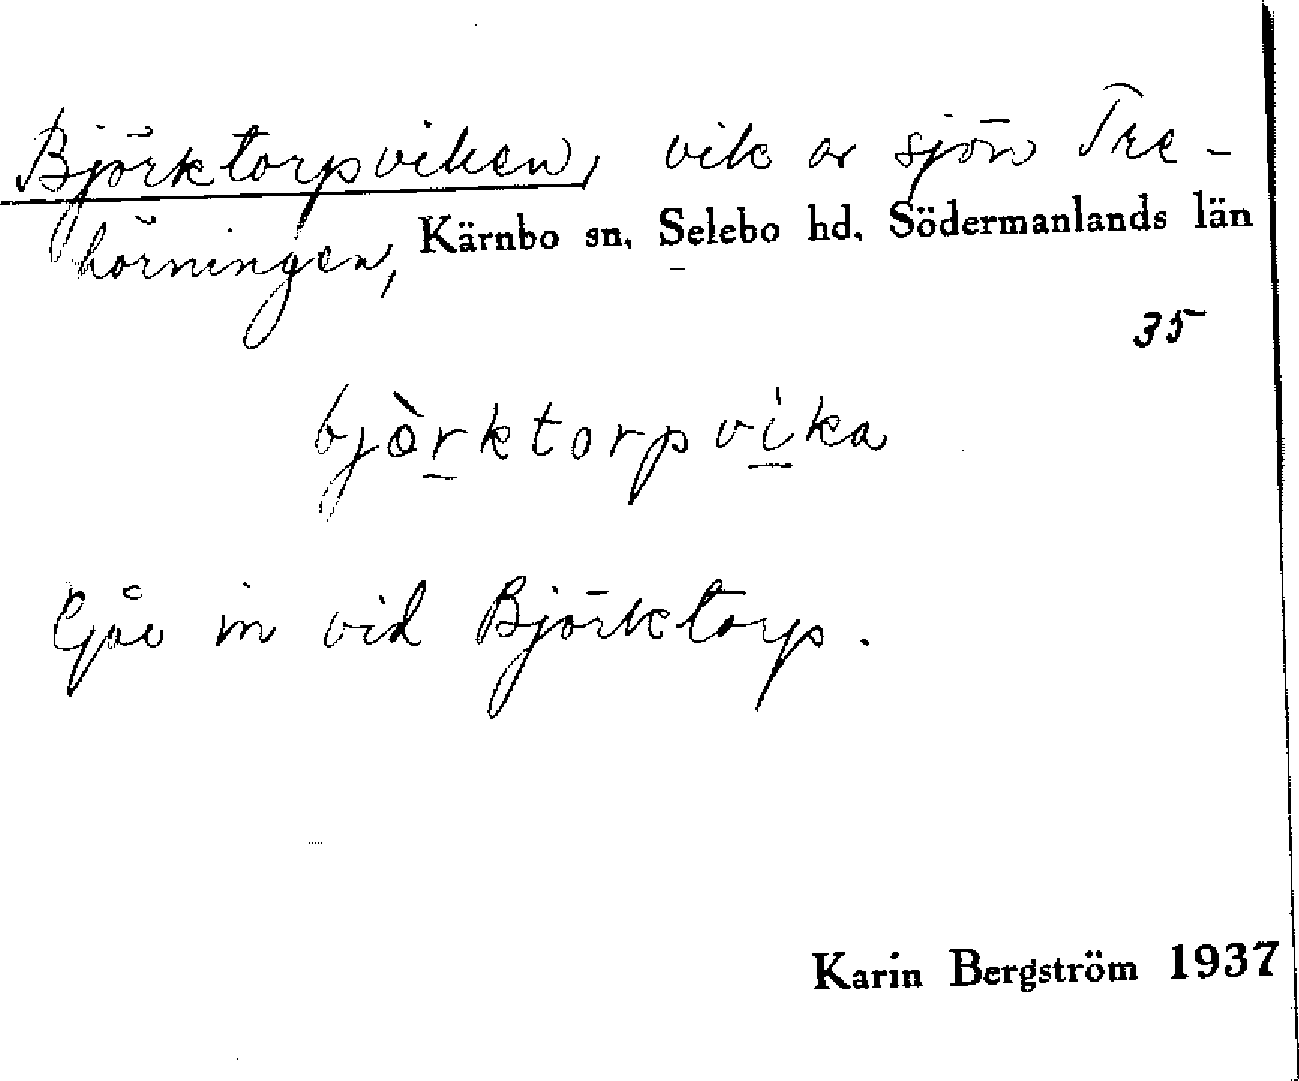 Björktorpsviken, vik av sjön Tre-
hörningen, Kärnbo sn, Selebo hd, Södermanlands län
35
bjòrktorpvìka
Går in vid Björktorp.
Karin Bergström 1937